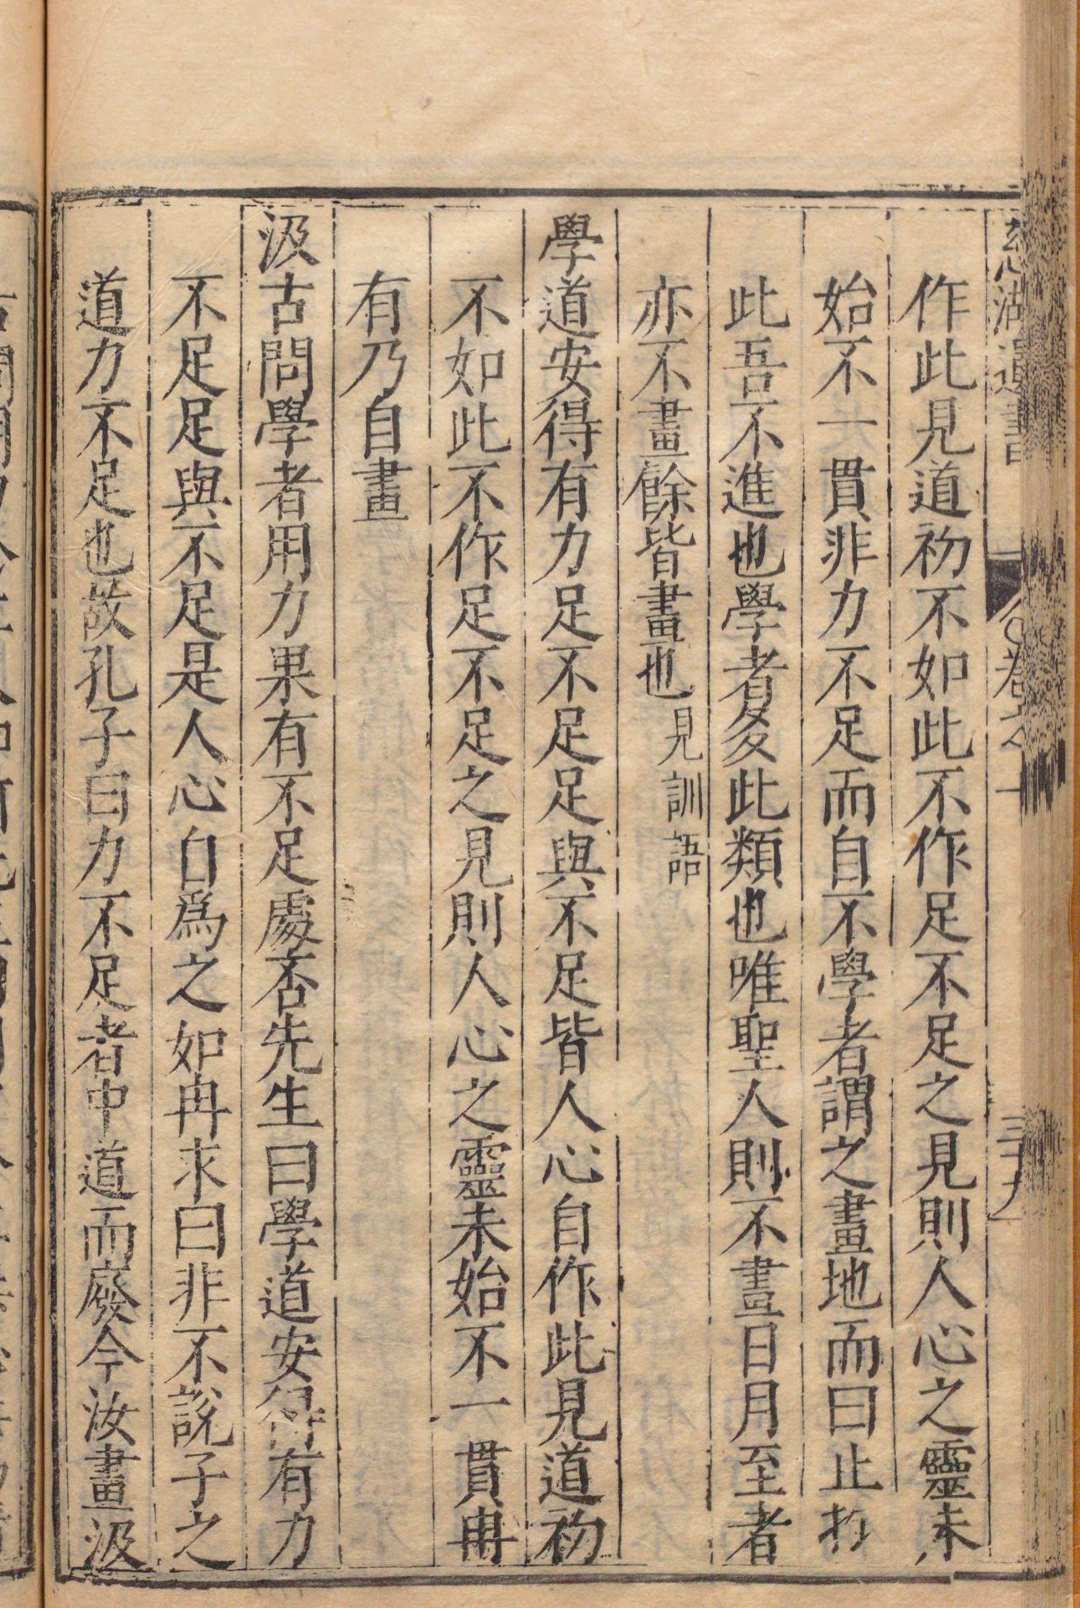 慈湖遺書 卷之十 三十九
作此見道初不如此不作足不足之見則人心之靈未
始不一貫非力不足而自不學者謂之畫地而曰止於
此吾不進也學者多此類也唯聖人則不畫日月至者
亦不畫餘皆畫也見訓語
學道安得有力足不足足與不足皆人心自作此見道初
不如此不作足不足之見則人心之靈未始不一貫冉
有乃自畫
汲古問學者用力果有不足處否先生曰學道安得有力
不足足與不足是人心自為之如冉求曰非不說子之
道力不足也故孔子曰力不足者中道而廢今汝畫汲